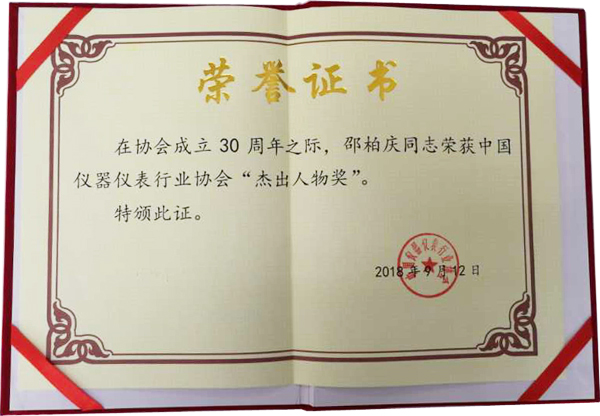 荣誉证书
在协会成立 30 周年之际，邵柏庆同志荣获中国
仪器仪表行业协会“杰出人物奖”。
特颁此证。
中国仪器仪表行业协会
2018 年 9 月 12 日